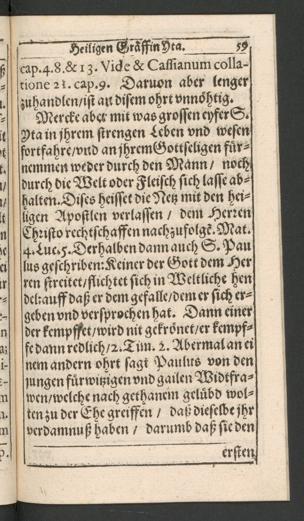 Heiligen Gräffin Yta. 59
cap.4.8.&13. Vide & Cassianum colla-
tione 21. cap.9. Daruon aber lenger
zuhandlen/ist an disem ohrt vnnöhtig.
Mercke aber mit was grossen eyfer S.
Yta in jhrem strengen Leben vnd wesen
fortfahre/vnd an jhrem Gottseligen für-
nemmen weder durch den Mann/ noch
durch die Welt oder Fleisch sich lasse ab-
halten. Dises heisset die Netz mit den hei-
ligen Apostlen verlassen / dem Herren
Christo rechtschaffen nachzufolgē. Mat.
4. Luc. 5. Derhalben dann auch S. Pau
lus geschriben: Keiner der Gott dem Her
ren streitet/flichtet sich in Weltliche hen
del: auff daß er dem gefalle/dem er sich er-
geben vnd versprochen hat. Dann einer
der kempfft/wird nit gekrönet/er kempf-
fe dann redlich/2. Tim. 2. Abermal an ei
nem andern ohrt sagt Paulus von den
jungen fürwitzigen vnd gailen Widtfra-
wen/welche nach gethanem gelübd wol-
ten zu der Ehe greiffen / daß dieselbe jhr
verdamnuß haben / darumb daß sie den
ersten